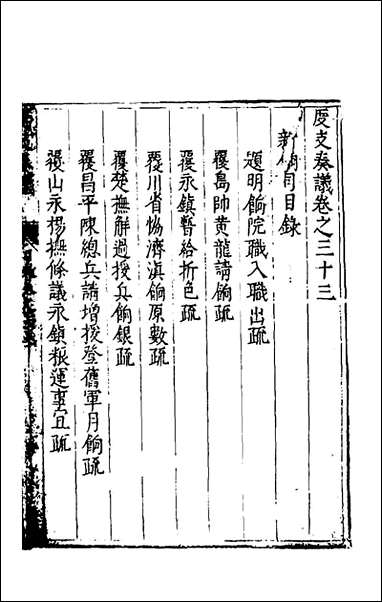 度支奏議卷之三十三
新餉司目錄
題明餉院職入職出疏
覆島帥黄龍請餉疏
覆永鎮暫給折色疏
覆川省恊濟滇餉原數疏
覆楚撫解過援兵餉銀疏
覆昌平陳總兵請增援登舊軍月餉疏
覆山永楊撫條議永鎮糧運事宜疏